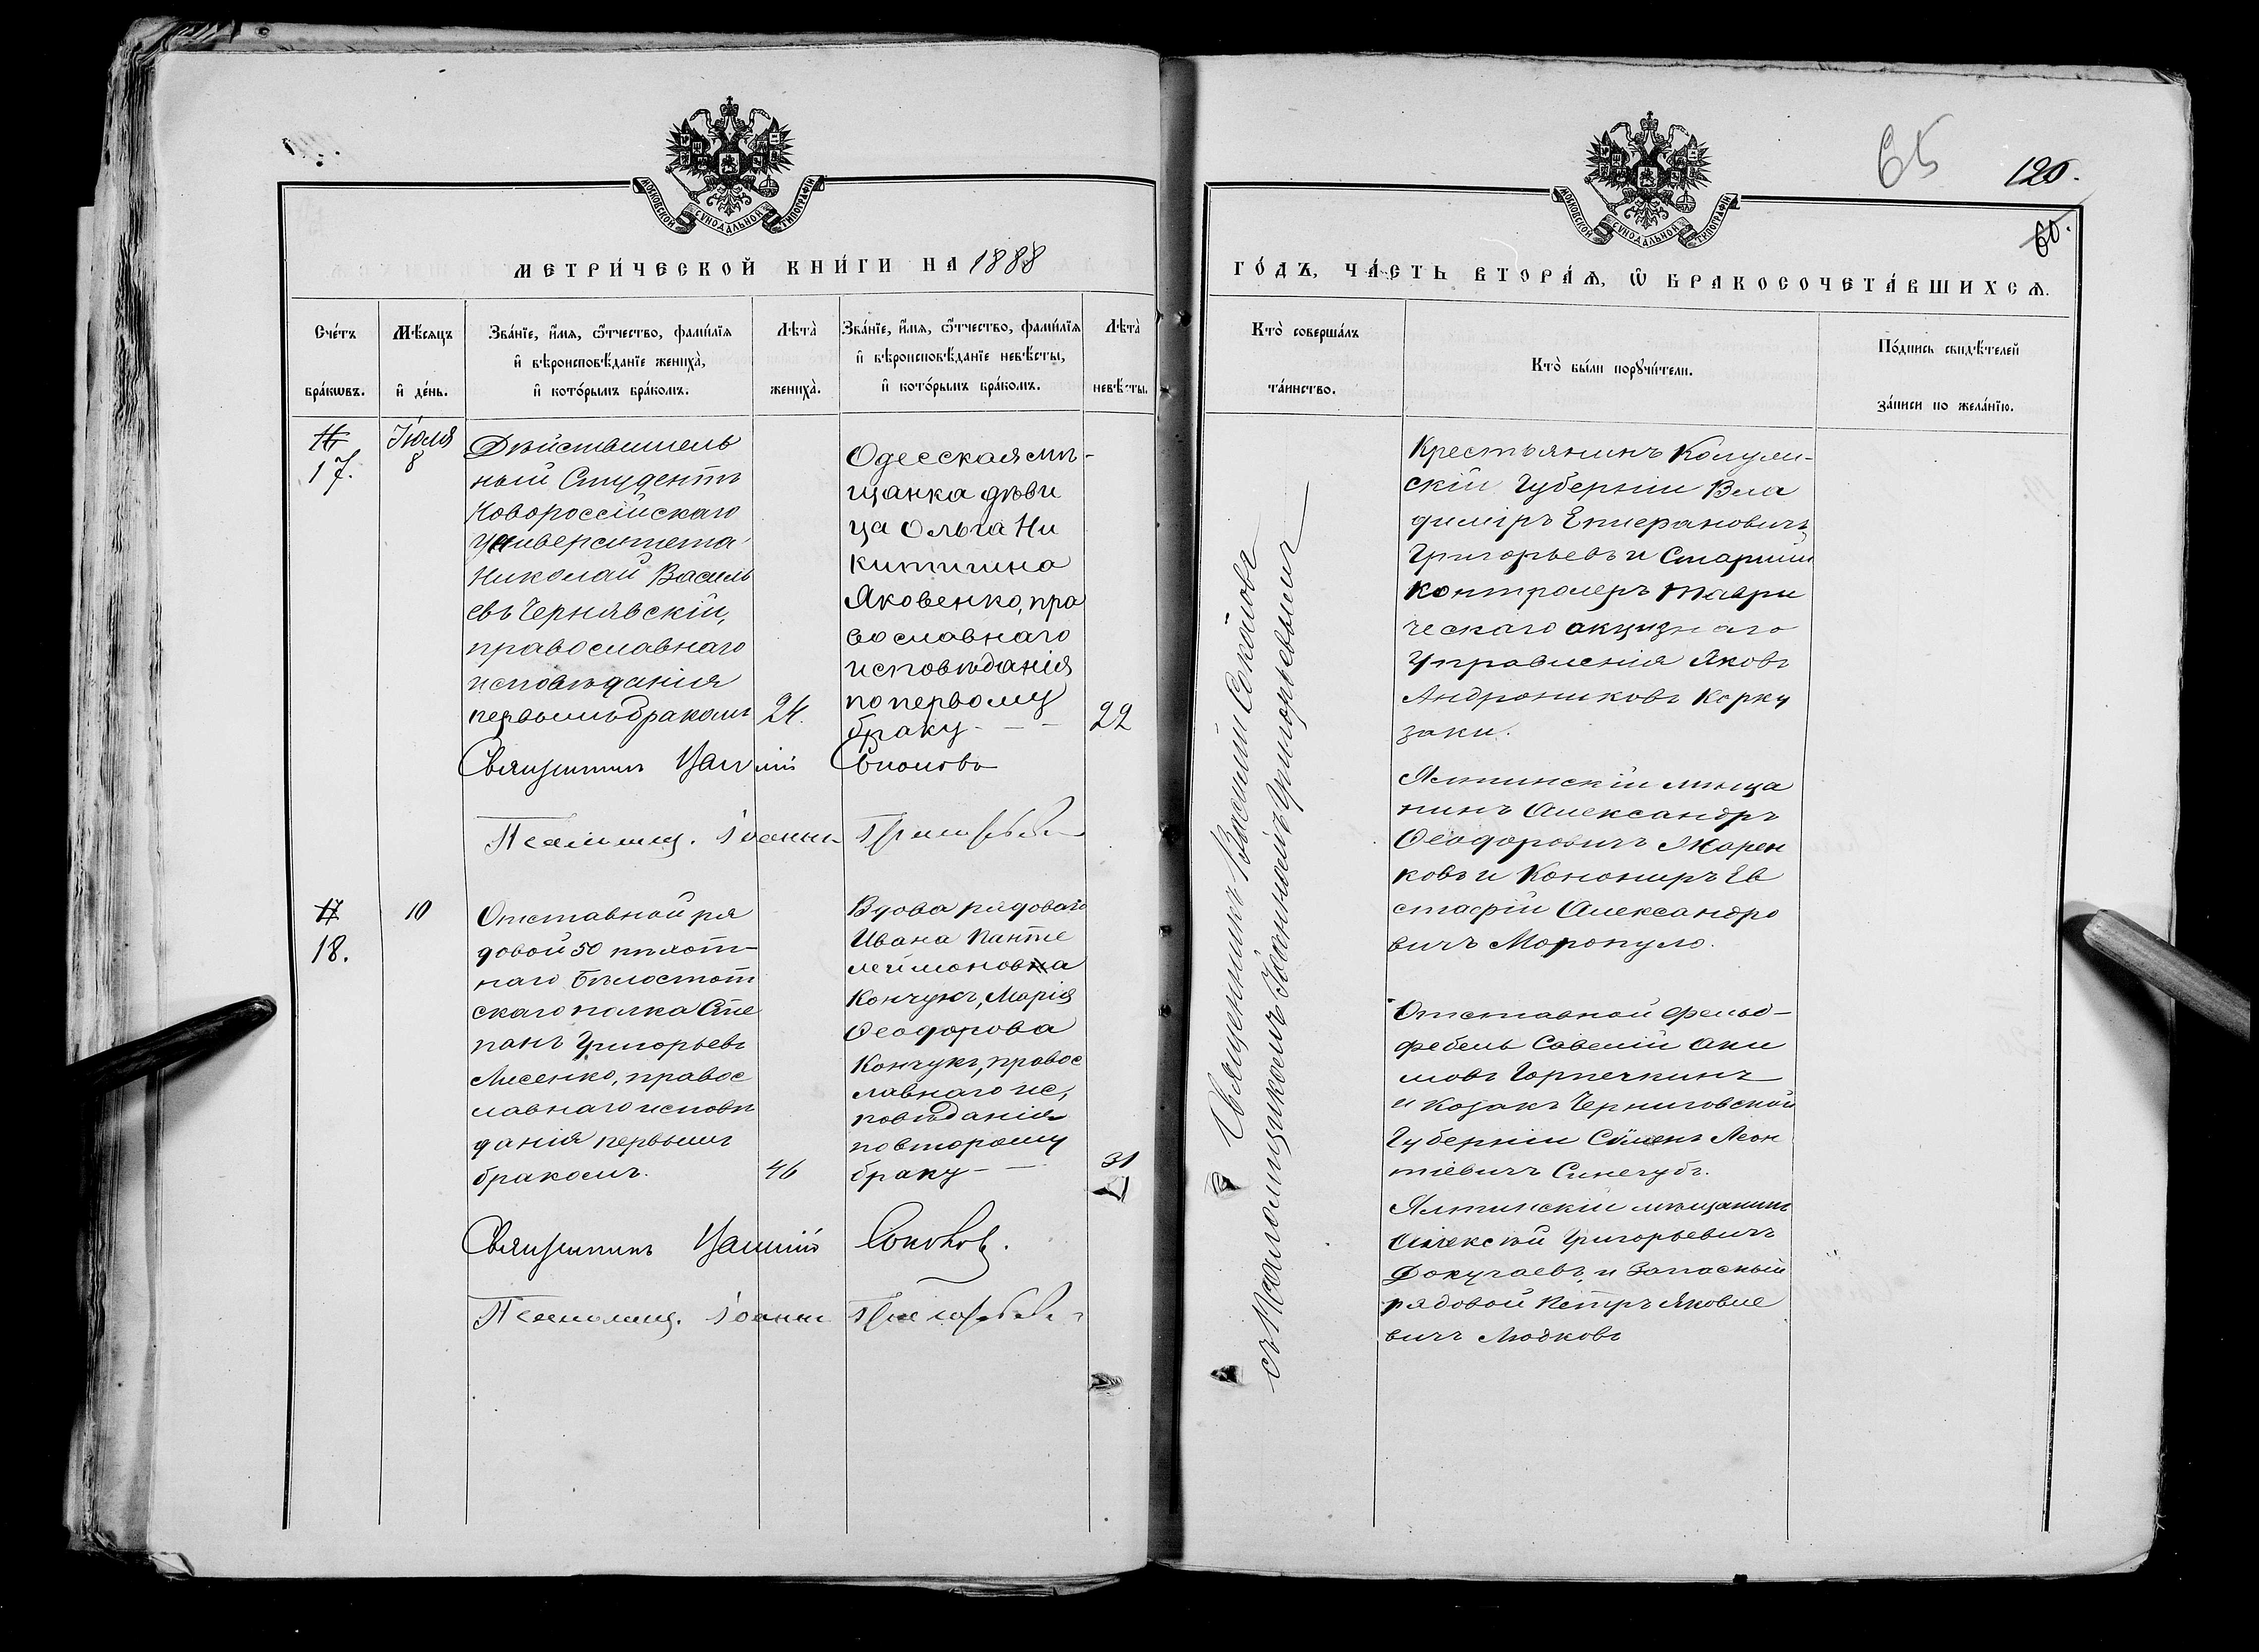 МОСКОВСКОЙ СѴНОДАЛЬНОЙ ТИПОГРАФІИ
МЕТРИ́ЧЕСКОЙ КНИ́ГИ НА 1888
Сче́тъ бра́кѡвъ.
Мѣ́сяцъ и҆ де́нь.
Зва́нїе, и҆́мя, ѻ҆́тчество, фамі́лїя
и҆ вѣроисповѣ́данїе жениха̀,
и҆ кото́рымъ бра́комъ.
Лѣта̀ жениха̀.
Зва́нїе, и҆́мя, ѻ҆́тчество, фамі́лїя
и҆ вѣроисповѣ́данїе невѣ́сты,
и҆ кото́рымъ бра́комъ.
Лѣта̀ невѣ́сты.
16
17.
Іюля
8
Дѣйствитель
ный Студентъ
Новороссійскаго
университета
Николай Василь
евъ Чернявскій,
православнаго
исповѣданія
первымъ бракомъ
24.
Одесская мѣ-
щанка дѣви
ца Ольга Ни
китична
Яковенко, пра
вославнаго
исповѣданія
по первому
браку
22
Священникъ Василій Соколовъ
Псаломщ. Іоаннъ Григорьевъ
17
18.
10
Отставной ря
довой 50 пѣхот-
наго Бѣлосток
скаго полка Сте
панъ Григорьевъ
Лисенко, правос
лавнаго исповѣ
данія первымъ
бракомъ.
46
Вдова рядоваго
Ивана Панте
леймонова
Кончукъ, Марія
Ѳеодорова
Кончукъ, правос
лавнаго ис,
повѣданія
по второму
браку
31
Священникъ Василій Соколовъ.
Псаломщ. Іоаннъ Григорьевъ
65
120.
60.
МОСКОВСКОЙ СѴНОДАЛЬНОЙ ТИПОГРАФІИ
ГО́ДЪ, ЧА́СТЬ ВТОРА́Ѧ, Ѽ БРАКОСОЧЕТА́ВШИХСѦ.
Кто̀ соверша́лъ
та́инство.
Кто̀ бы́ли порꙋчи́тели.
По́дпись свидѣ́телей
за́писи по жела́нїю.
Священникъ Василій Соколовъ
съ Псаломщикомъ Іоанномъ Григорьевымъ
Крестьянинъ
скій Губерніи Вла
диміръ
Григорьевъ и Старшій
Контролеръ Таври
ческаго акцизнаго
Управленія Яковъ
Андрониковъ Карку
заки.
Ялтинскій мѣща
нинъ Александръ
Ѳеодоровичъ Марен
ковъ и Канониръ Ев
стафій Александро
вичъ Моропуло.
Отставной фельд-
фебель Савелій Аки
мовъ Горпечкинъ
и Козакъ Черниговской
Губерніи Сименъ Леон
тіевичъ Синегубъ.
Ялтинскій мѣщанинъ
Алексѣй Григорьевичъ
Докучаевъ, и Запасный
рядовой Петръ Яковле
вичъ Людковъ